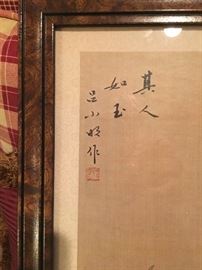 其人
如玉
呂小明作